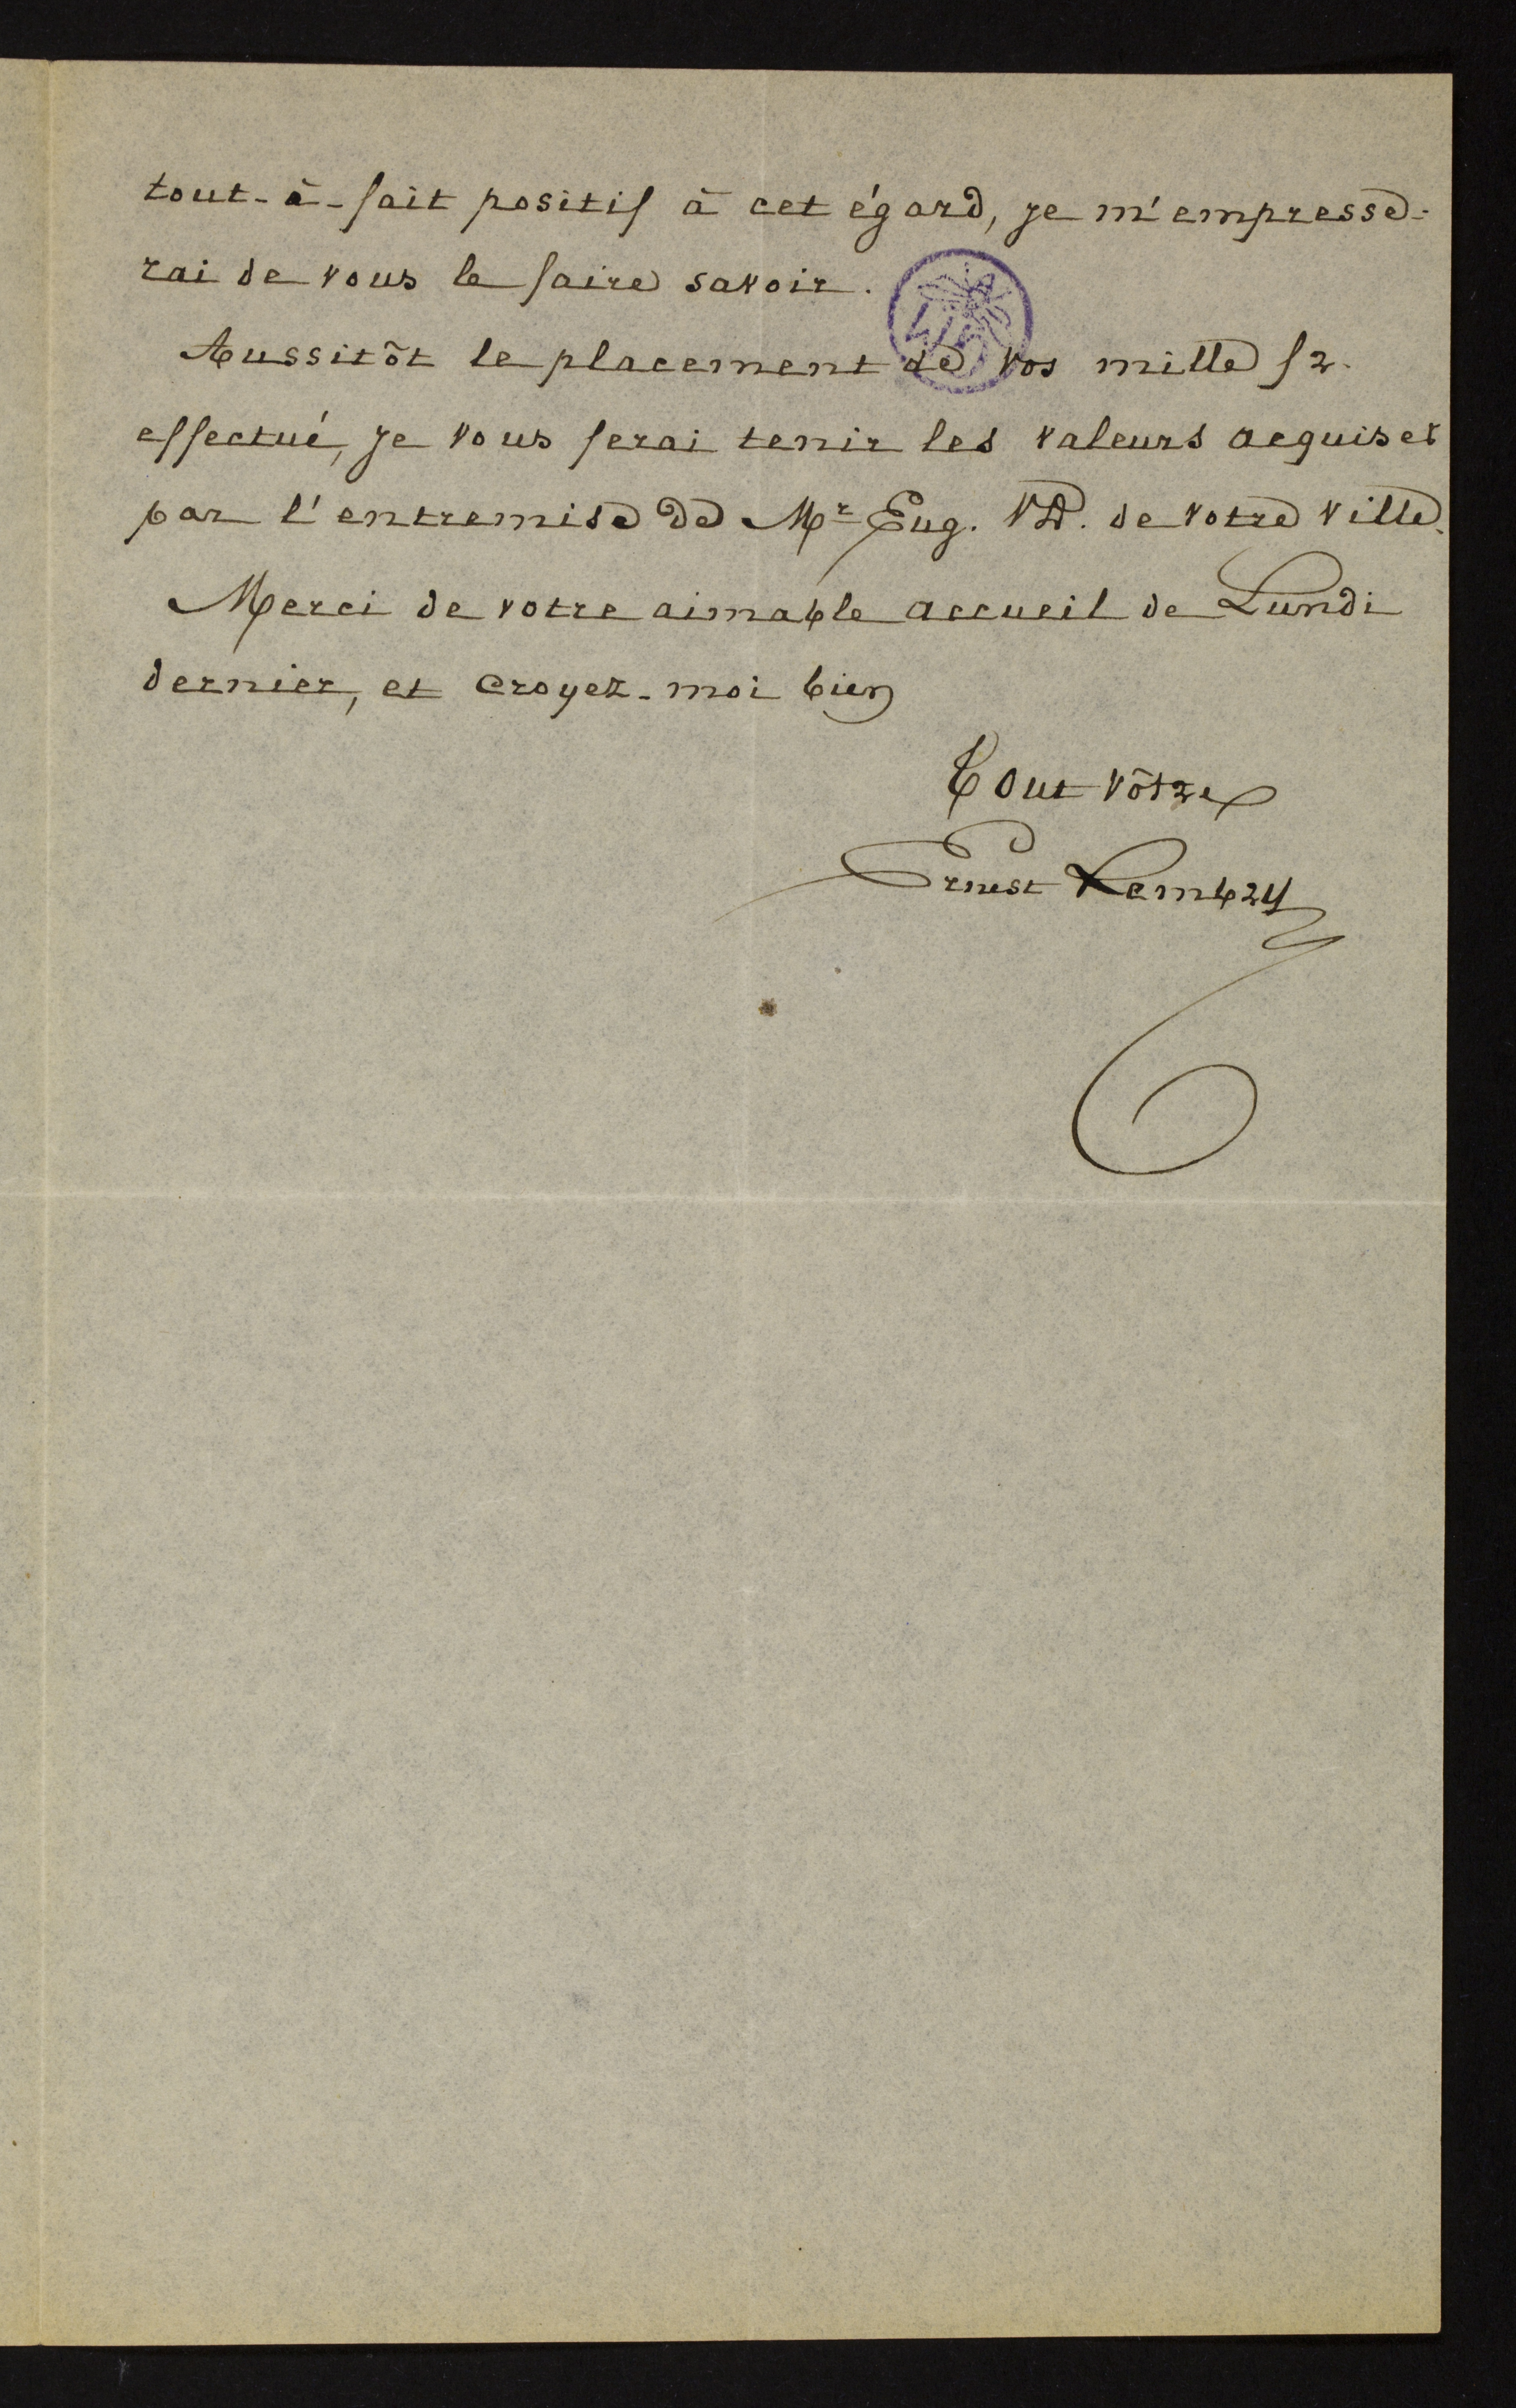 tout-à-fait positif à cet égard, je m'empresse-
rai de vous le faire savoir.
Aussitôt le placement de vos mille fr.
effectué, je vous ferai tenir les valeurs acquises
par l'entremise de Mr Eug. VD. de votre ville.
Merci de votre aimable accueil de Lundi
dernier, et croyez-moi bien
Tout vôtre
Ernest Lembry